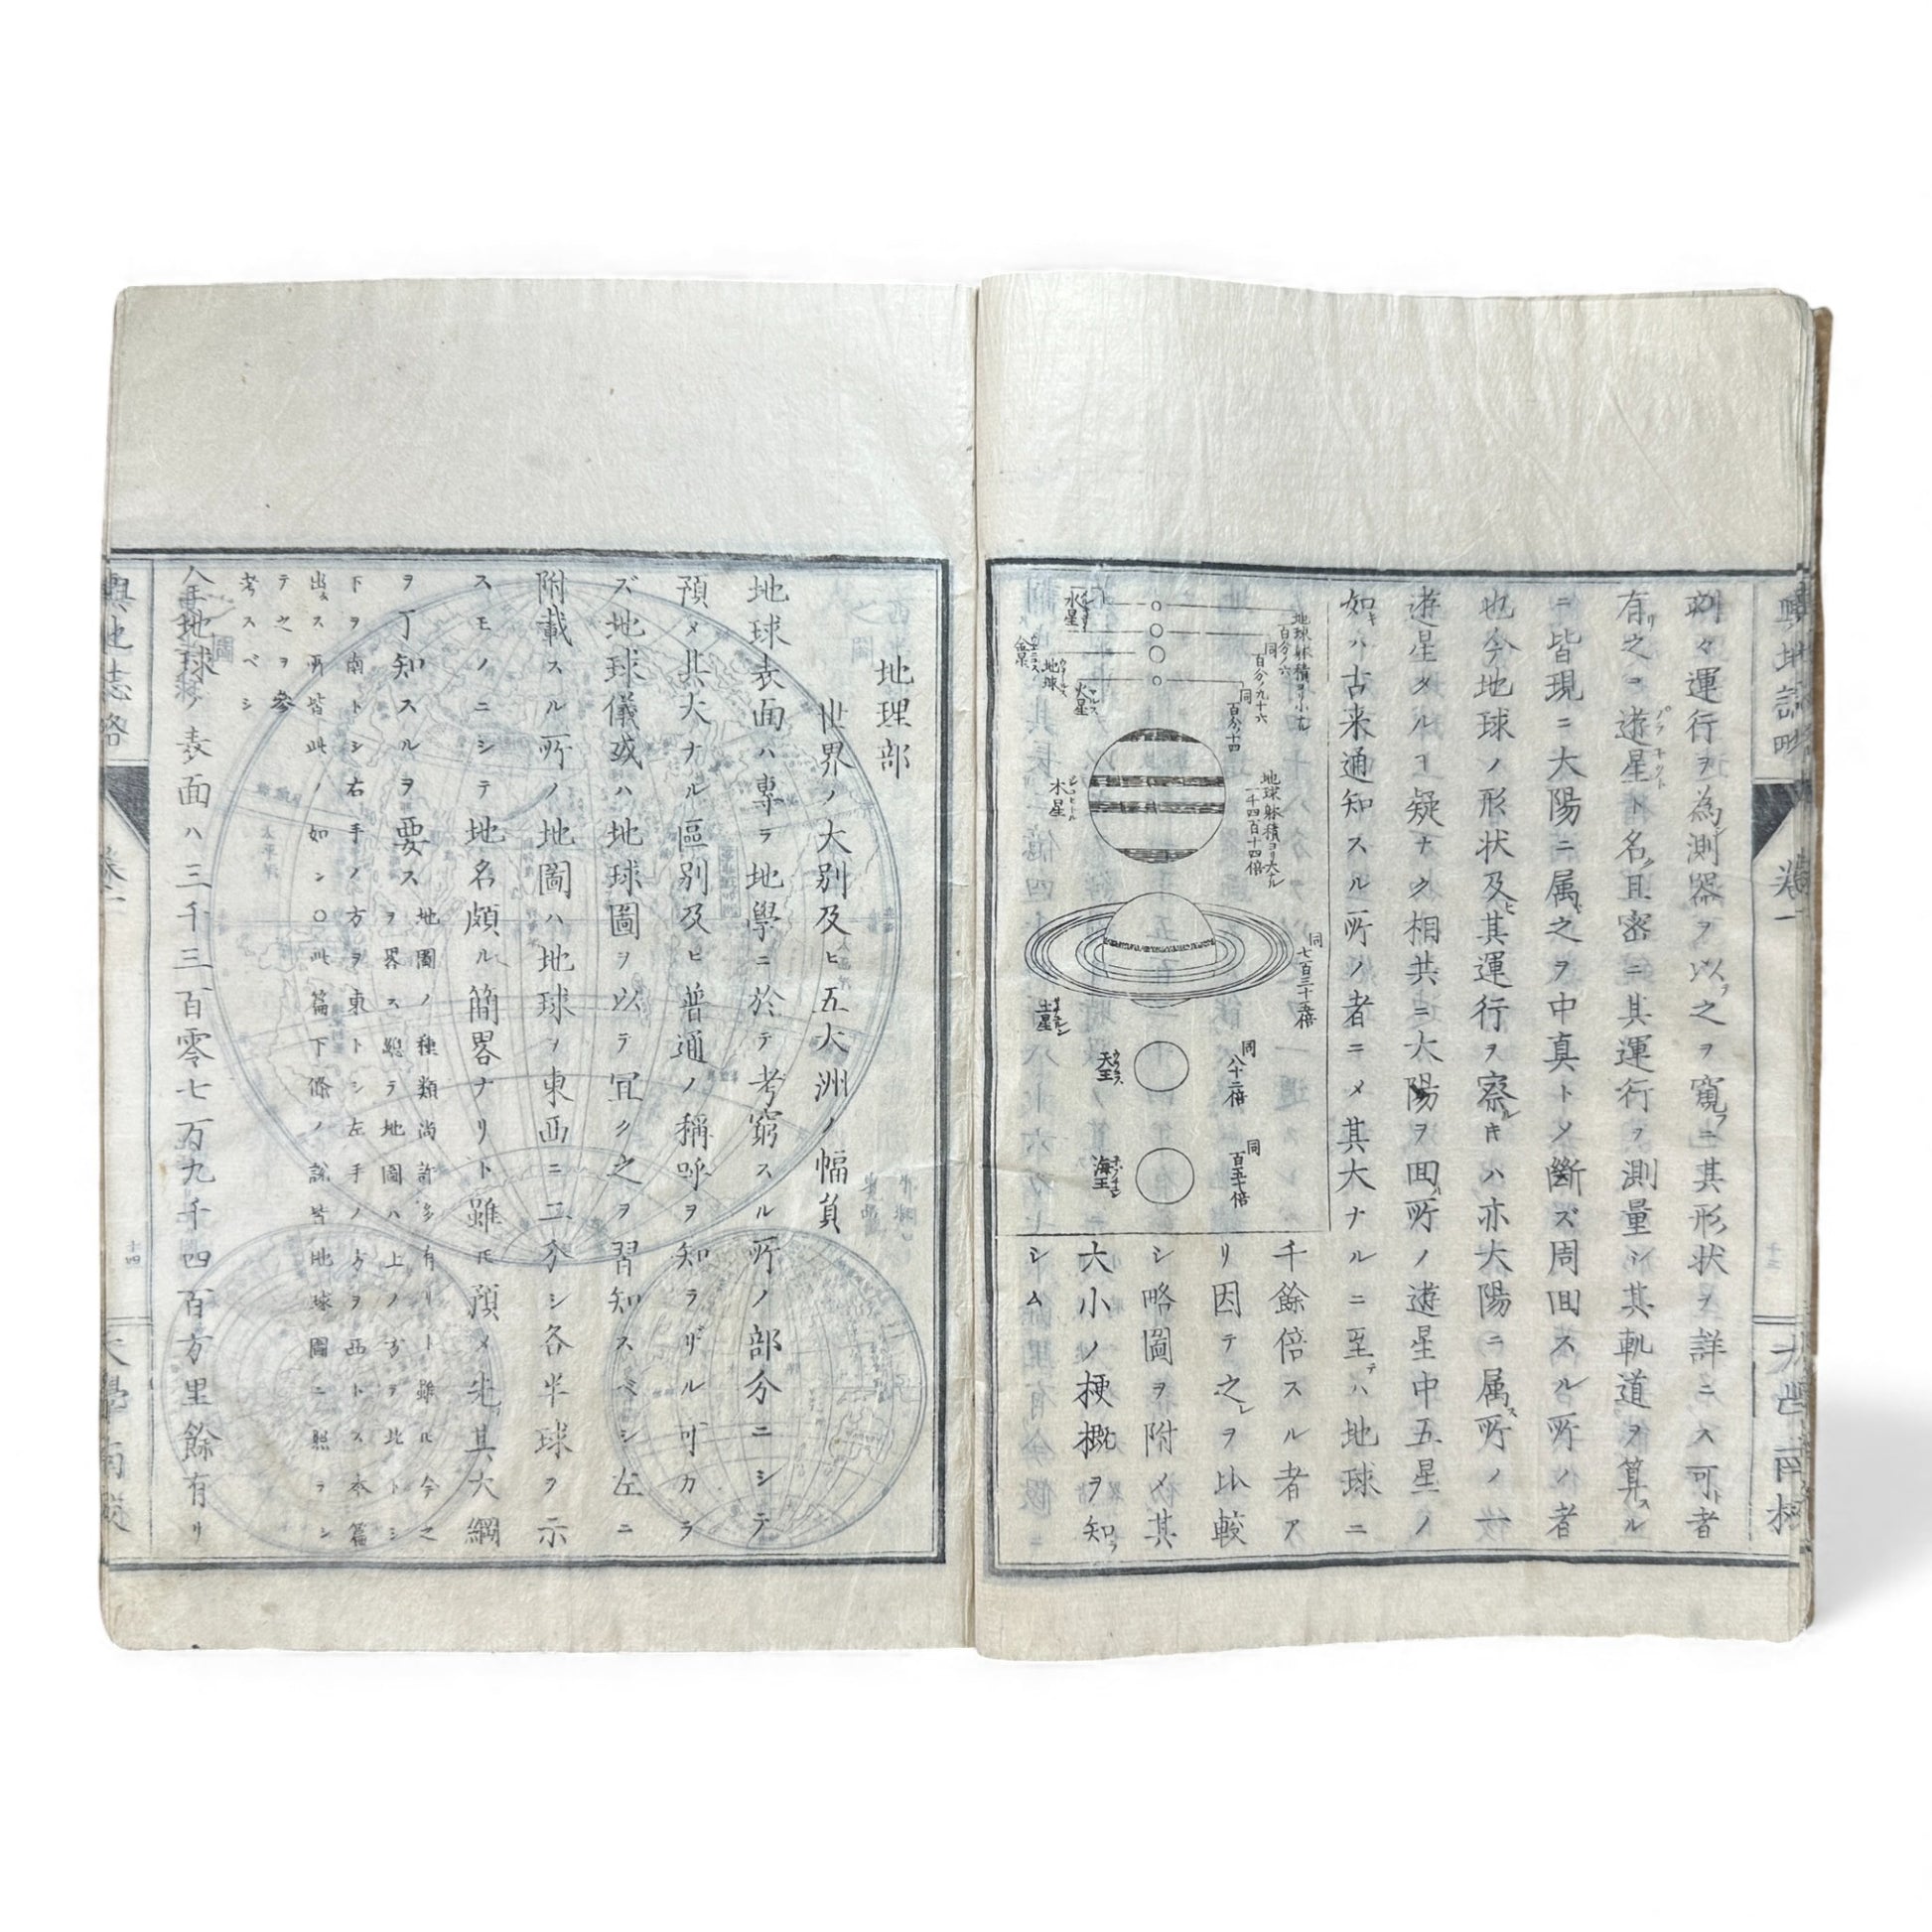 別々運行ヲ為測器ヲ以之ヲ窺ニ其形状ヲ詳ニス可者
有之コ遊星ト名且密ニ其運行ヲ測量シ其軌道ヲ算スル
ニ皆現ニ大陽ニ属之ヲ中真トメ断ズ周囬スル所ノ者
也今地球ノ形状及其運行ヲ察ルキハ亦大陽ニ属所ノ一
遊星タルヿ疑ナク相共ニ大陽ヲ囬所ノ遊星中五星ノ
如キハ古来通知スル所ノ者ニメ其大ナルニ至テハ地球ニ
千餘倍スル者ア
リ因テ之ヲ比較
シ略圖ヲ附メ其
大小ノ梗概ヲ知
シム
水星
地球躰積ヨリ小ナル
百分ノ六
金星
同
百分ノ九十六
地球
火星
同
百分ノ十四
木星
地球躰積ヨリ大ナル
一千四百十四倍
土星
同
七百三十五倍
天王
ウラニュス
同
八十二倍
海王
同
百五十倍
卷一
地理部
世界ノ大別及ヒ五大洲ノ幅員
地球表面ハ專ラ地學ニ於テ考窮スル所ノ部分ニシテ
預メ其大ナル區別及ヒ普通ノ稱呼ヲ知ラザル可カラ
ズ地球儀或ハ地球圖ヲ以テ冝ク之ヲ習知スベシ左ニ
附載スル所ノ地圖ハ地球ヲ東西ニ二分シ各半球ヲ示
スモノニシテ地名頗ル簡畧ナリト雖𪜈預メ先其大綱
ヲ了知スルヲ要ス
地圖ノ種類尚許多有リト雖ル今之
ヲ畧ス總テ地圖ハ上ノ方ヲ北トシ
下ヲ南トシ右手ノ方ヲ東トシ左手ノ方ヲ西トス本篇
出ス所皆此ノ如シ○此篇下條ノ説皆地球圖ニ照ラシ
テ之ヲ參
考スベシ
全地球ノ表面ハ三千三百零七万九千四百方里餘有リ
輿地誌略
卷一
十四
大學南校